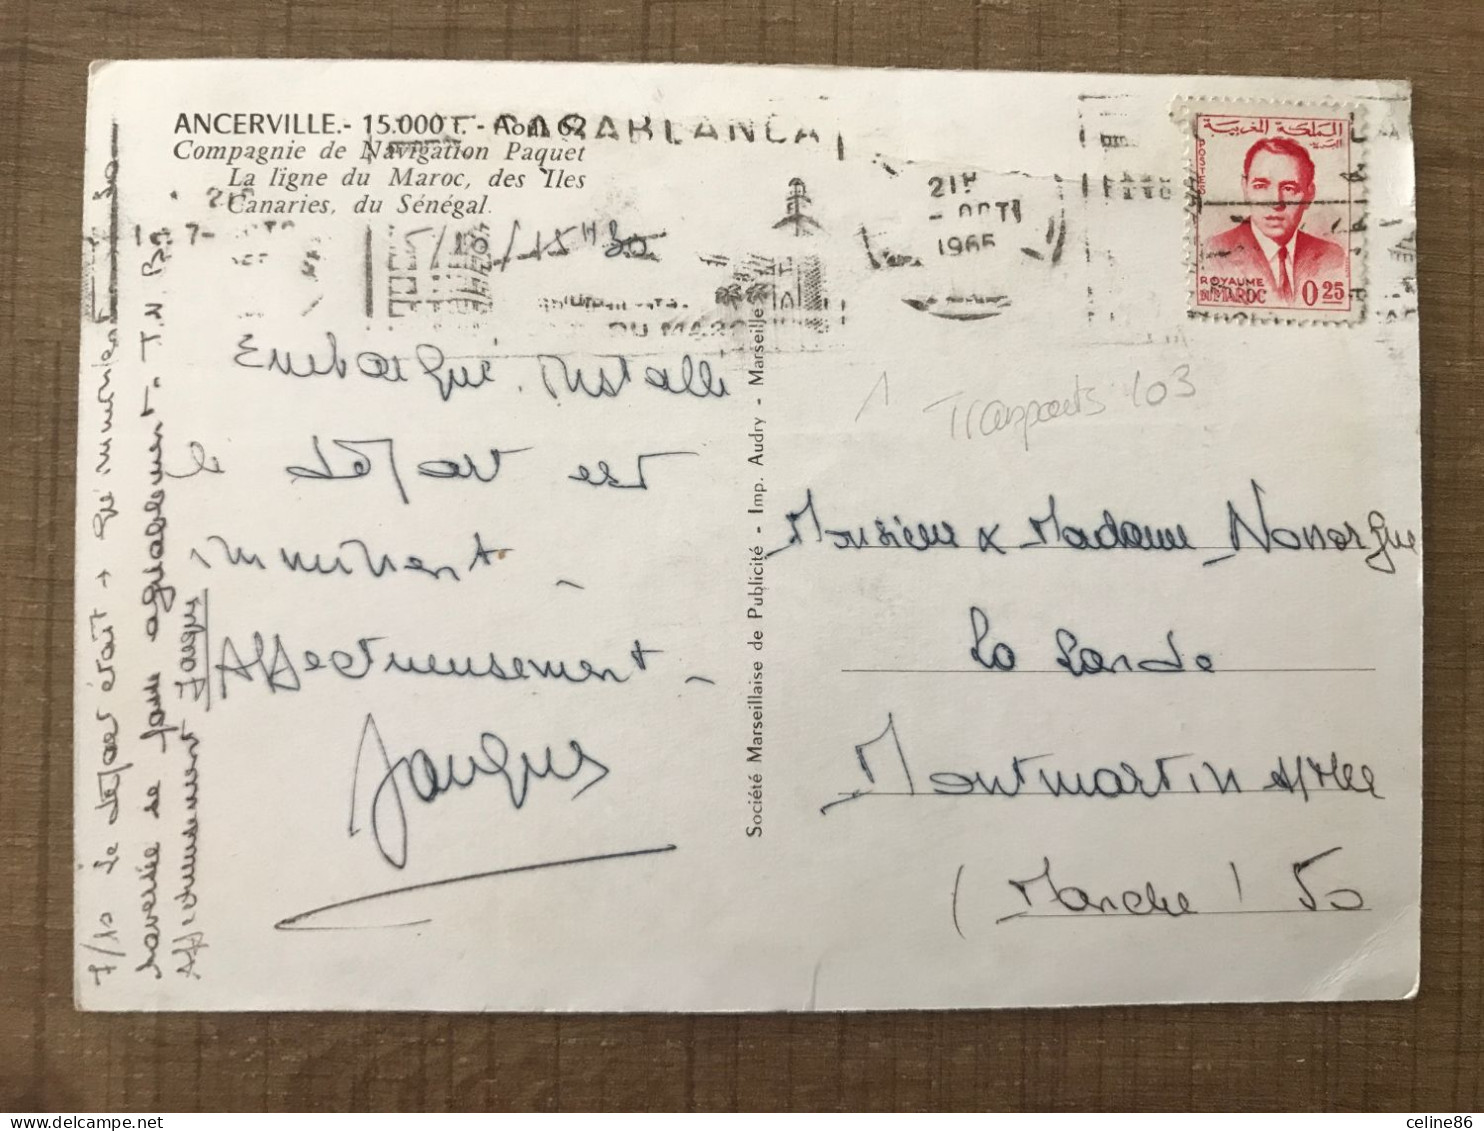 ANCERVILLE.- 15.000 T. - Août 62
Compagnie de Navigation Paquet
La ligne du Maroc, des Iles
Canaries, du Sénégal.
CASABLANCA
21H
7- OCT
1965
DU MAROC
المملكة المغربية
البريد
POSTES
ROYAUME
DU MAROC 0.25
15H30
Embarqué. Installé
le départ est
imminent. -
Affectueusement. -
Jacques
7/10 Le départ était + qu'imminent
traversée se fait agréablement. T.V.
Affectueusement Jacques
Société Marseillaise de Publicité - Imp. Audry - Marseille
Transports 103
Monsieur & Madame
La Lande
Montmartin s/Mer
(Manche) 50
celine86